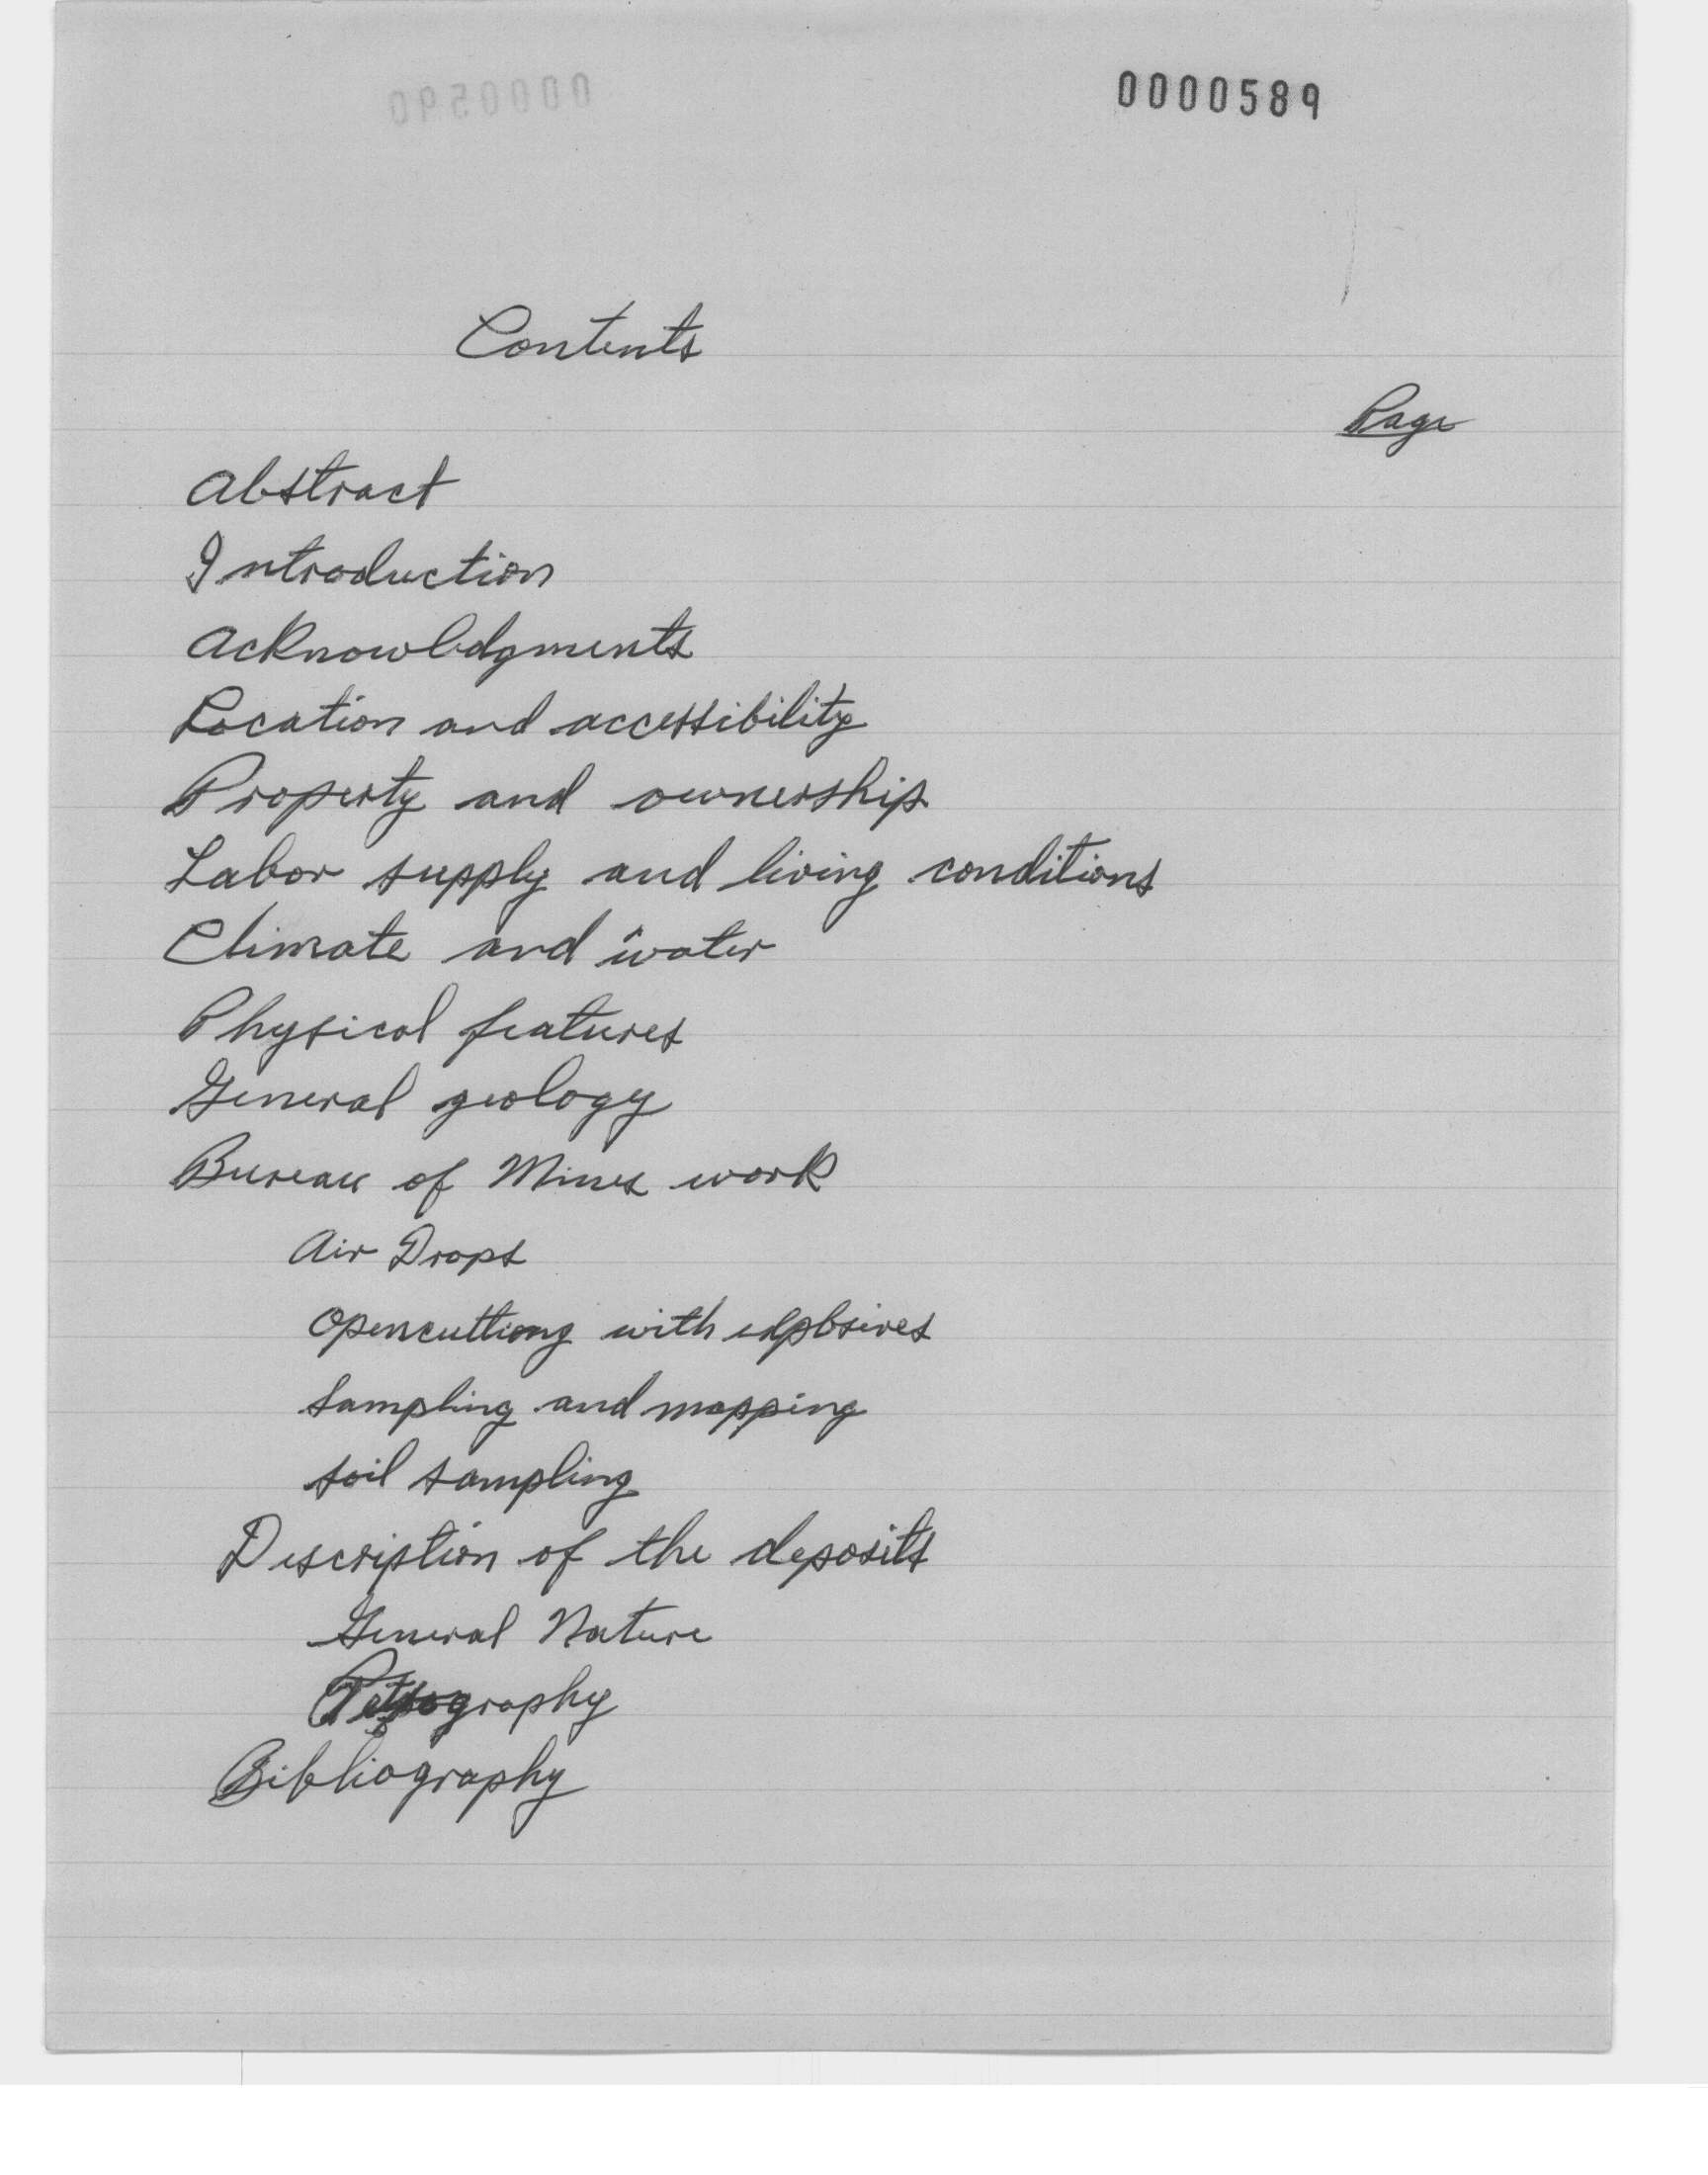 0000589
Contents
Page
Abstract
Introduction
Acknowledgments
Location and accessibility
Property and ownership
Labor supply and living conditions
Climate and water
Physical features
General geology
Bureau of Mines work
Air Drops
Opencutting with explosives
Sampling and mapping
Soil sampling
Description of the deposits
General Nature
Petrography
Bibliography